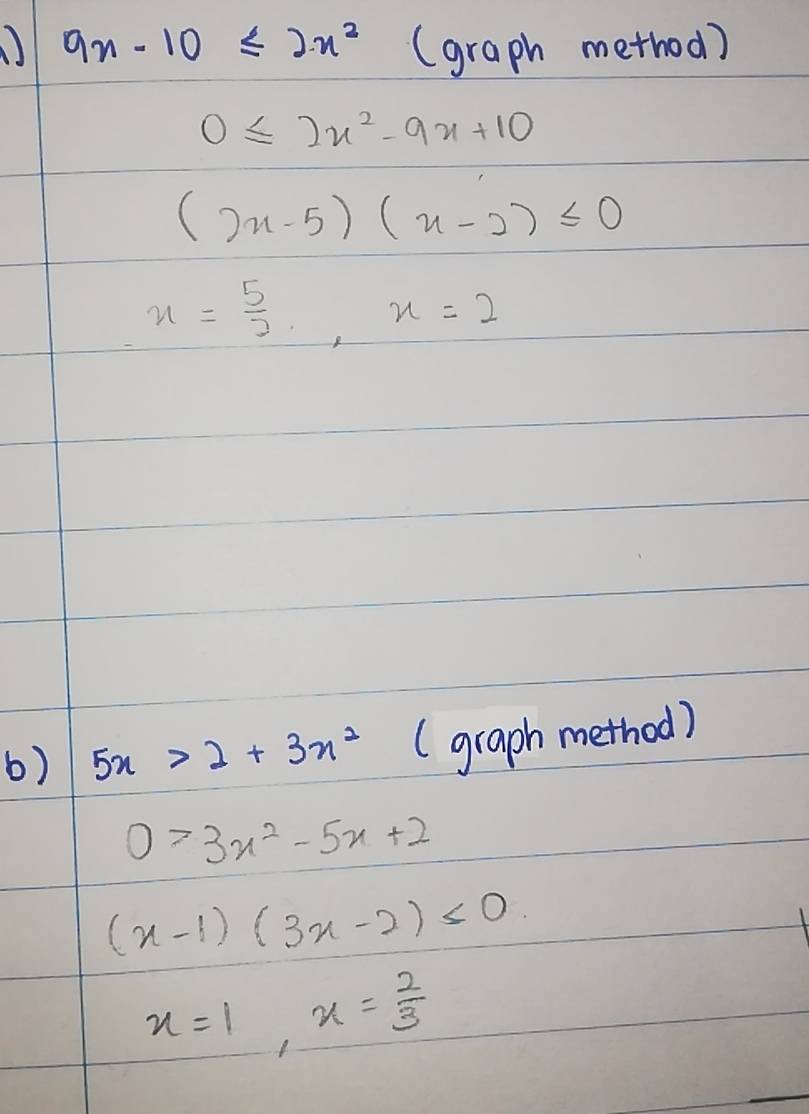 a) 9x - 10 ≤ 2x² (graph method)
0 ≤ 2x² - 9x + 10
(2x - 5) (x - 2) ≤ 0
x = 5/2 , x = 2
b) 5x > 2 + 3x² (graph method)
0 > 3x² - 5x + 2
(x - 1) (3x - 2) ≤ 0
x = 1 , x = 2/3